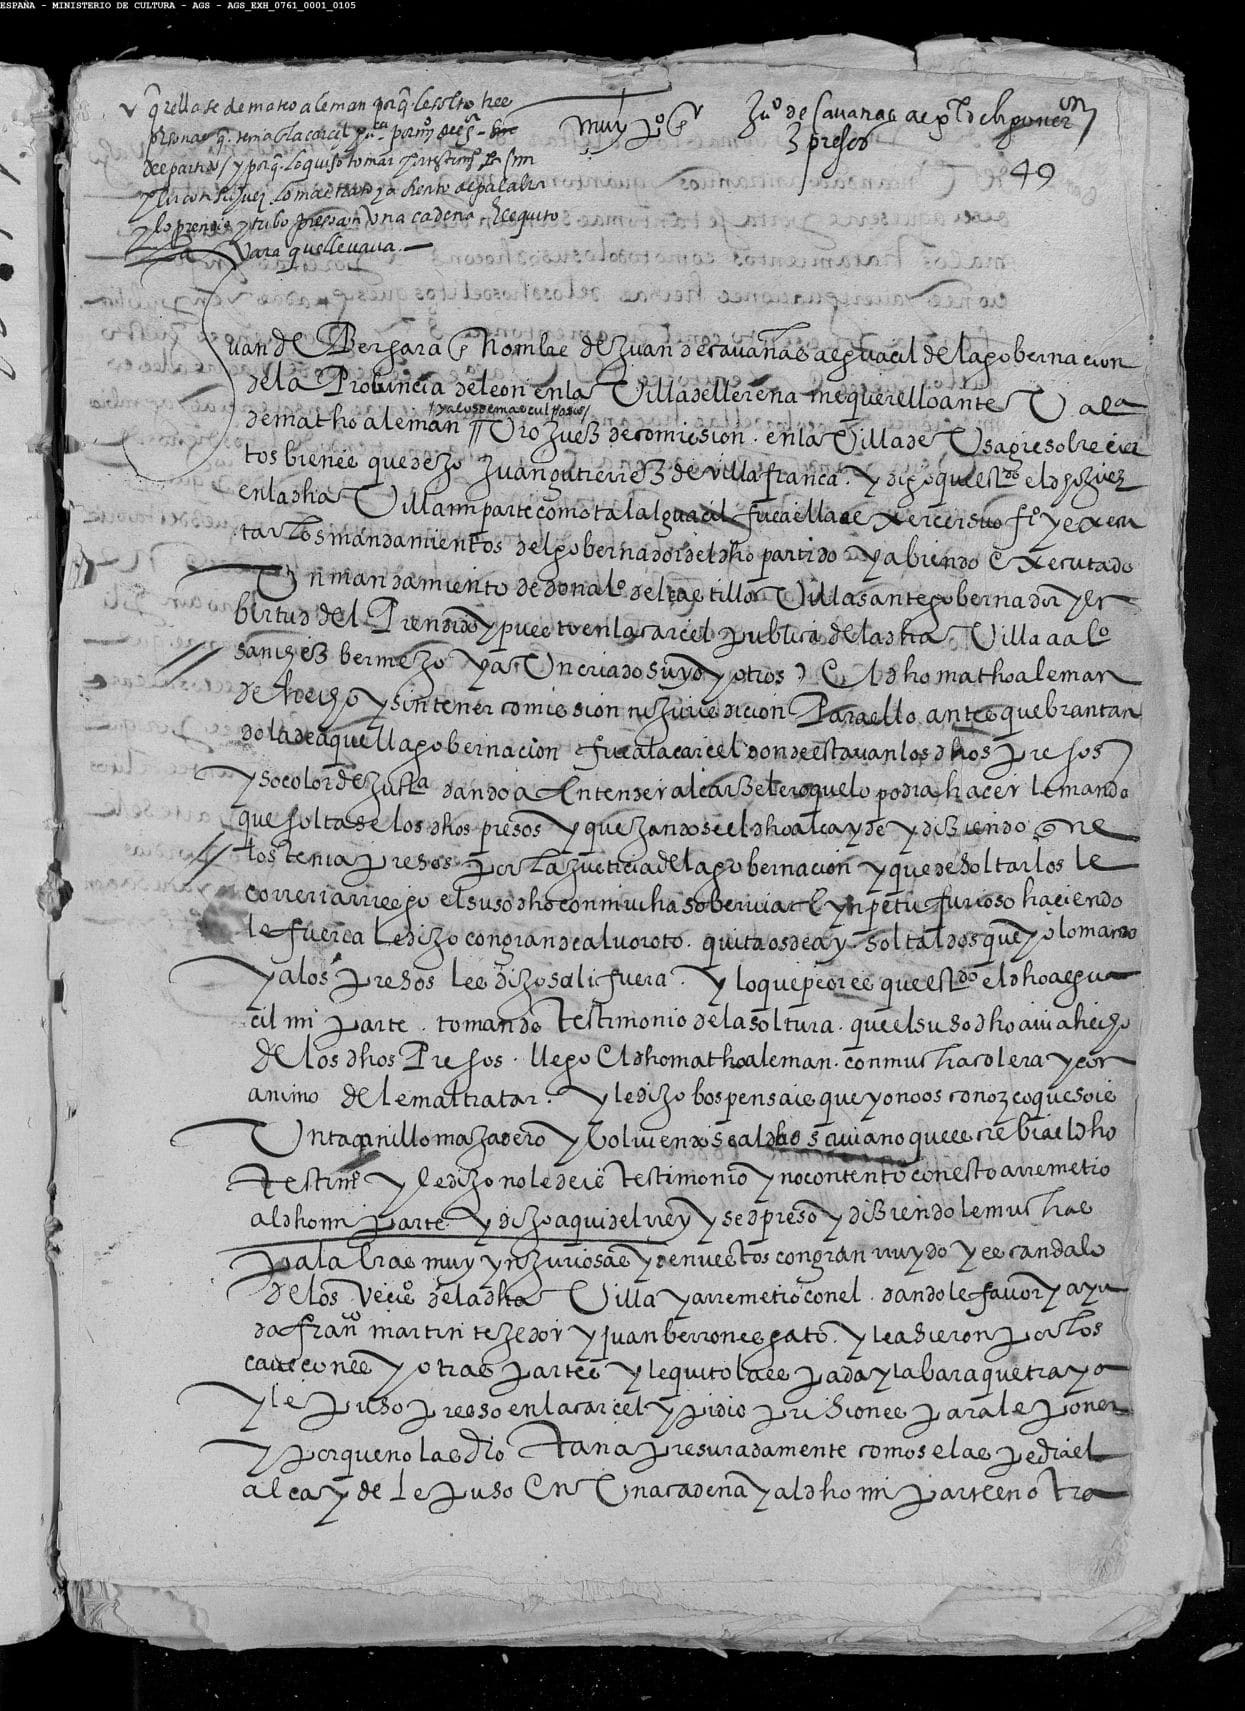 ESPAÑA - MINISTERIO DE CULTURA - AGS - AGS_EXH_0761_0001_0105
q̃rellase de mateo aleman porq̃ le solto tres
presonas q̃ tenia en la carcel
deepartido y porq̃ lo quiso tomar por testimº
lo maltrato y a frento de palabra
y lo prendio y tubo preso con una cadena y le quito
la vara que llevava
muy poss
Juº de cavañas
3 presos
49
Juan de Bergara en nombre de Juan de cavañas alguacil de la gobernacion
de la Probincia de leon en la Villa de llerena me querello ante V al
y a los demas culpados
de matheo aleman Vro Juez de comision en la Villa de Usagre sobre cier
tos bienes que dejo Juan gutierrez de villa franca. y digo que estdo el dho Juez
en la dha Villa mi parte como tal alguacil fue a ella a exercer su offº y execu
tar los mandamientos del gobernador del dho partido y abiendo executado
Un mandamiento de don alº del castillo Villasante gobernador y en
birtud del Prendido y puesto en la carcel publica de la dha Villa a alº
sanchez bermejo y a Un criado suyo y otros El dho matheo aleman
de hecho y sin tener comission ni Juridicion Para ello antes quebrantan
do la de aquella gobernacion fue a la carcel donde estavan los dhos presos
y so color de Justa dando a Entender al carzelero que lo podia hacer le mando
que soltase los dhos presos y quejandose el dho alcayde y diziendo que
los tenia presos por la Justicia de la gobernacion y que de soltarlos le
correria riesgo el suso dho con mucha soberuia E ynpetu furioso haciendo
le fuerça le dijo con grande alvoroto. quitaos de ay. soltaldos que yo lo mando
y a los presos les dijo sali fuera. y lo que peor es que estdo el dho algua
cil mi parte. tomando testimonio de la soltura. que el suso dho avia hecho
de los dhos Presos. llego El dho matheo aleman. con mucha colera y con
animo de le maltratar. y le dijo bos pensais que yo no os conozco que sois
Un tacanillo majadero y bolviendose al dho scriuano que escrebia el dho
testimº y le dijo no le deis testimonio y no contento con esto arremetio
al dho mi parte y dijo aqui del rrey y sed preso y diziendole muchas
palabras muy ynjuriosas y denuestos con gran rruydo y escandalo
de los vecisº de la dha Villa y arremetio con el. dandole favor y ayu
da franco martin tejedor y juan berrones gato. y le asieron por los
cabeçones y otras partes y le quito la espada y la bara que traya
y le puso preso en la carcel y pidio prisiones para le poner
y porque no las dio tan apresuradamente como se las pedia el
alcayde le puso En Una cadena y al dho mi parte en otra